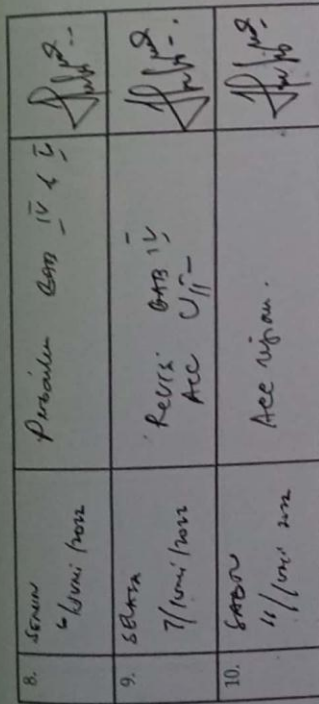 8. SENIN
6/Juni/2022
Perbaikan BAB IV & V
9. SELASA
7/Juni/2022
Revisi BAB IV
ACC
10. SABTU
11/Juni 2022
Acc ujian.